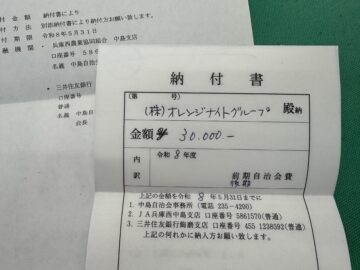 付 金 額 納付書により
付 方 法 別添納付書により納付方お願い致します。
付 期 限 令和8年5月31日
融 機 関 ・兵庫西農業協同組合 中島支店
口座番号 586
名義 中島自治
・三井住友銀行
口座番号
普通
名義 中島自
会長
納付書
(第 号)
(株)オレンジナイトグループ 殿納
金額 ¥30.000-
内訳
令和 8 年度
前期自治会費
後期
上記の金額を令和 8 年5月31日までに
1. 中島自治会事務所(電話 235-4290)
2. JA兵庫西中島支店 口座番号 5861570(普通)
3. 三井住友銀行飾磨支店 口座番号 455 1238592(普通)
上記の何れかに納入方お願い致します。